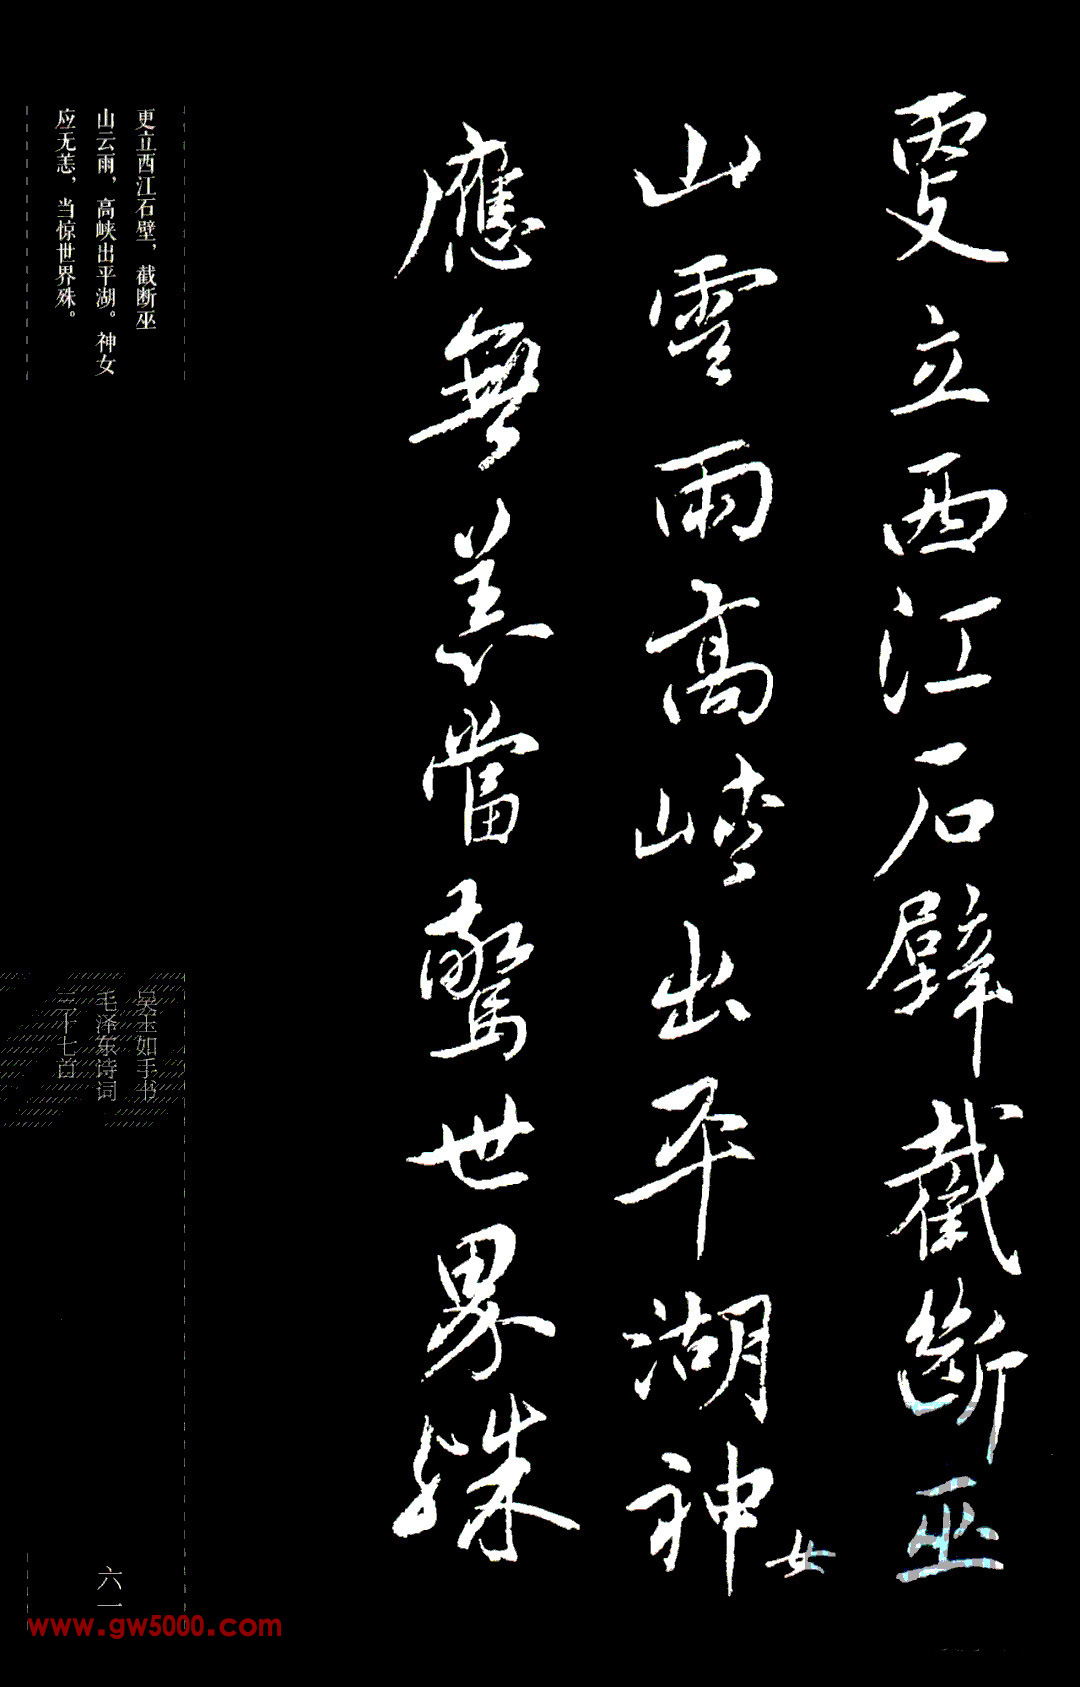 更立西江石壁截斷巫
山雲雨高峽出平湖神女
應無恙當驚世界殊
更立西江石壁，截断巫
山云雨，高峡出平湖。神女
应无恙，当惊世界殊。
吴玉如手书
毛泽东诗词
三十七首
六一
www.gw5000.com